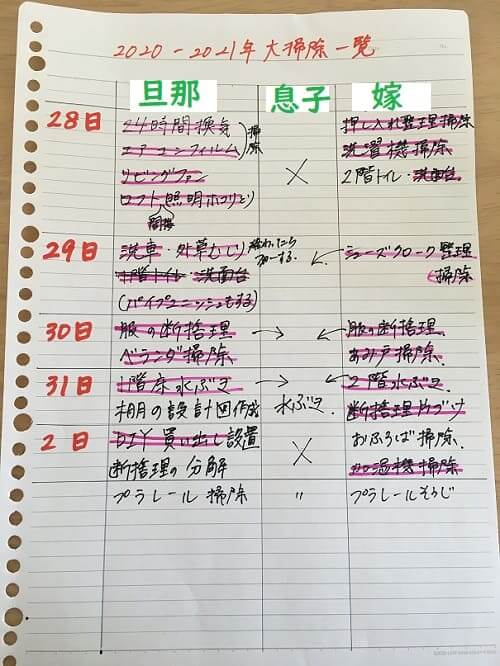 2020-2021年 大掃除一覧
旦那 息子 嫁
28日 24時間換気 掃除 押し入れ整理掃除
エアコンフィルム 洗濯機掃除
リビングファン × 2階トイレ・洗面台
ロフト照明ホコリとり
29日 洗車・外草むしり 終わったら シューズクローク整理
1階トイレ・洗面台 掃除
(パイプユニッシュもする)
30日 服の断捨離 → ← 服の断捨離
ベランダ掃除 あみ戸掃除
31日 1階床水ぶき → ← 2階水ぶき
棚の設計図作成 水ぶき 断捨離片づけ
2日 DIY買い出し設置 × おふろば掃除
断捨離の分解 加湿機掃除
プラレール掃除 〃 プラレールそうじ